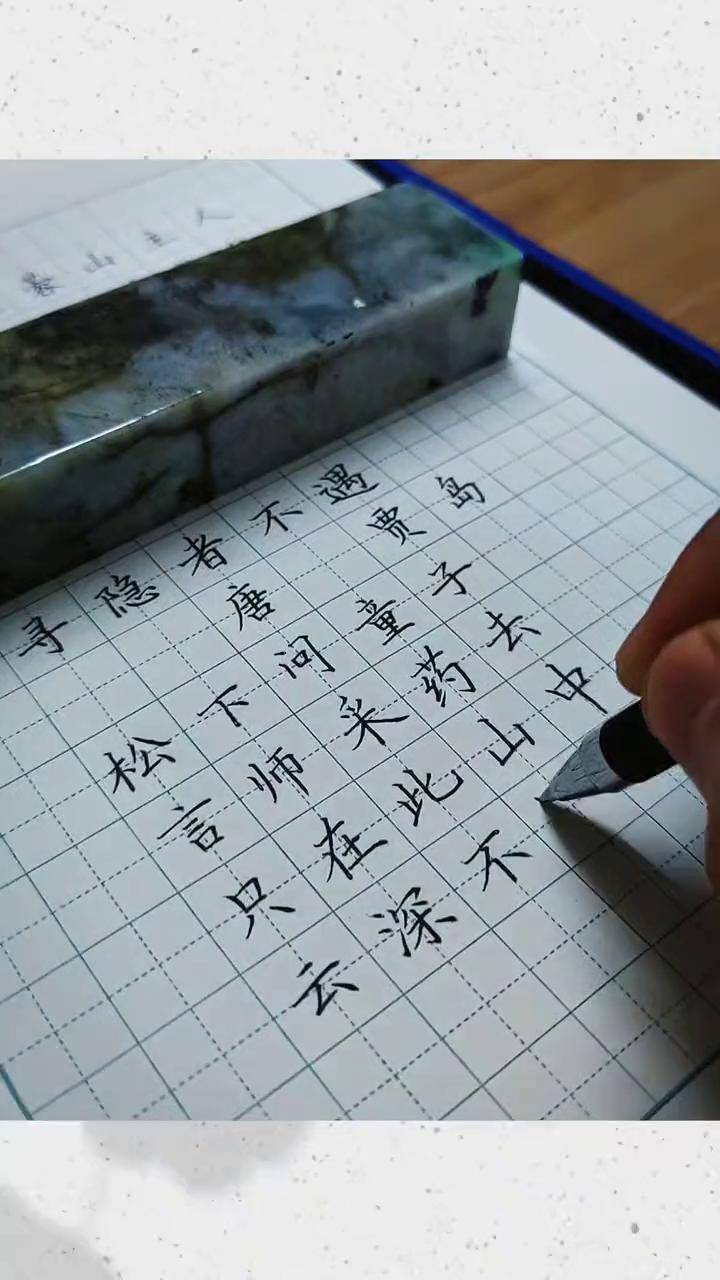 山主人
寻隐者不遇
唐 贾岛
松下问童子
言师采药去
只在此山中
云深不